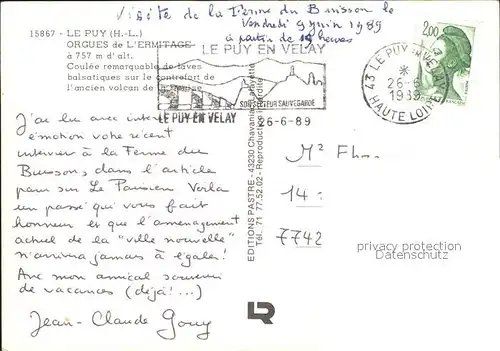 Visite de la Ferme du Buisson le
Vendredi 9 Juin 1989
à partir de 19 heures
15867 - LE PUY (H.-L.)
ORGUES DE L'ERMITAGE
à 757 m d'alt.
Coulée remarquable de laves
balsatiques sur le contrefort de
l'ancien volcan de
LE PUY EN VELAY
SON SECTEUR SAUVEGARDE
LE PUY EN VELAY
26-6-89
43 LE PUY EN VELAY
26-6
1989
HAUTE LOIRE
2,00
J'ai lu avec intérêt
émotion votre récent
interview à la Ferme du
Buisson, dans l'article
paru sur Le Parisien. Voilà
un passé qui vous fait
honneur et que l'aménagement
actuel de la "ville nouvelle"
n'arrivera jamais à égaler!
Avec mon amical souvenir
de vacances (déjà!...)
Jean-Claude Gouy
EDITIONS PASTRE - 43230 Chavaniac-Lafayette
Tél. 71 77.52.02 - Reproduction interdite
Mr
14
7742
privacy protection
oldthing.de